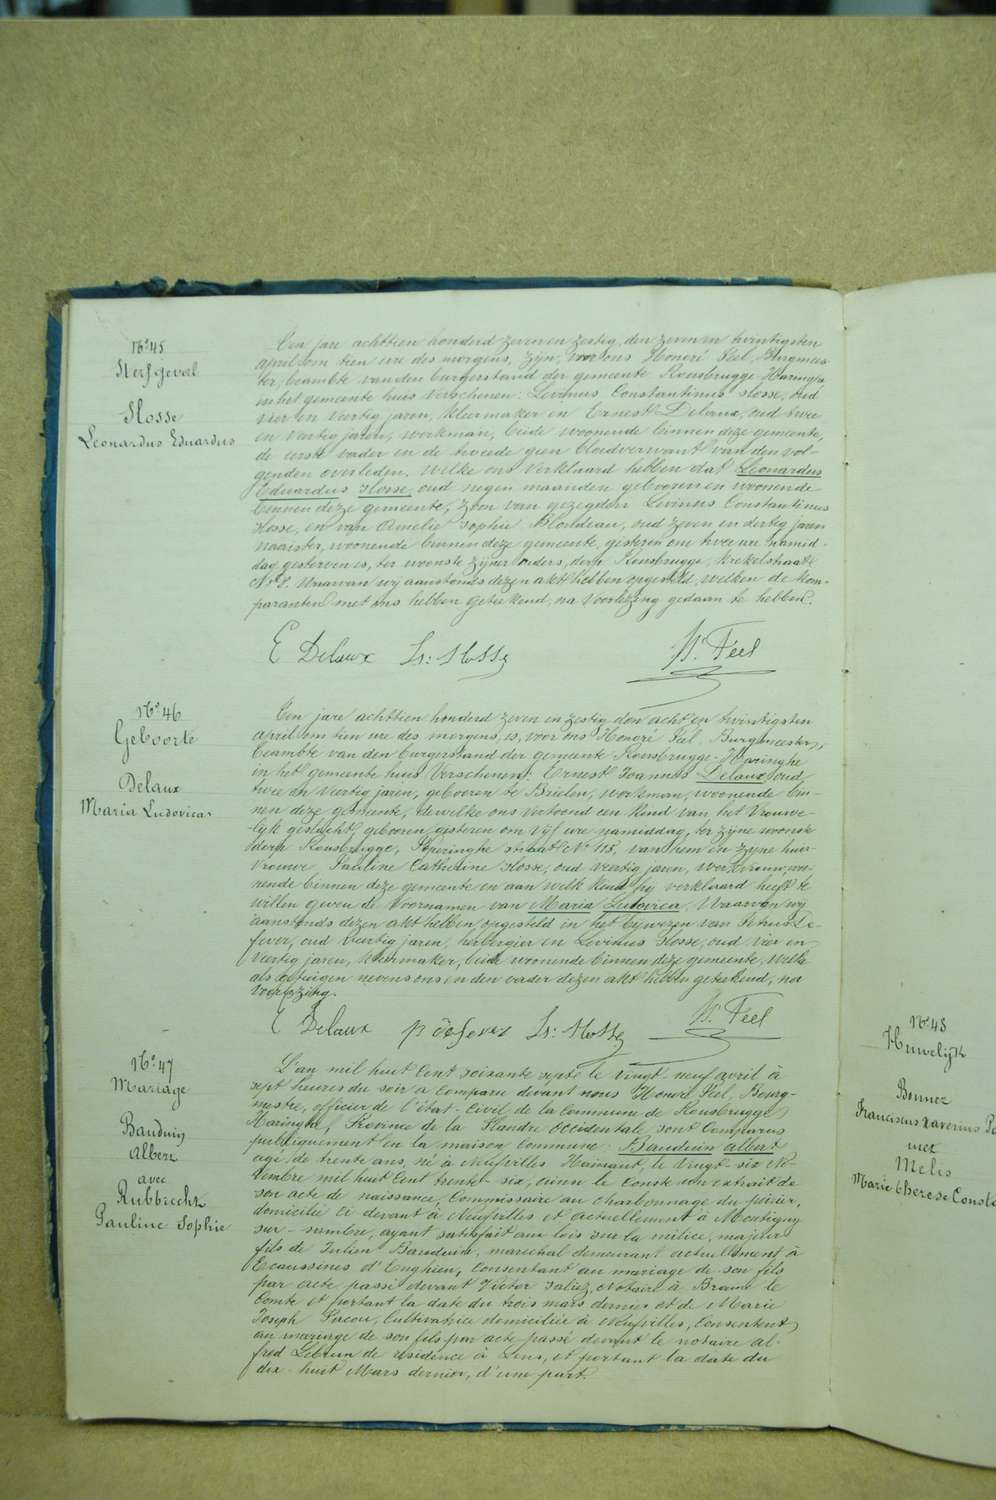 N° 45
Sterfgeval
Hosse
Leonardus Eduardus
Ten jare achttien honderd zeven en zestig, den zeven en twintigsten
april om tien ure des morgens, zyn voor ons Honoré Feel, Burgmees-
ter, beambte van den burgerstand der gemeente Rousbrugge-Haringhe
in het gemeente huis verschenen: Levinus Constantinus Hosse, oud
vier en veertig jaren, kleermaker en Ernest Delaux, oud twee
en veertig jaren, werkman, beide woonende binnen deze gemeente,
de eerste vader en de tweede geen bloedverwant van den vol-
genden overleden. Welke ons verklaard hebben dat Leonardus
Eduardus Hosse, oud negen maanden geboren en woonende
binnen deze gemeente, zoon van gezegden Levinus Constantinus
Hosse, en van Amelie Sophie Blondeau, oud zeven en dertig jaren
naaister, woonende binnen deze gemeente, gisteren om twee ure namid-
dag gestorven is, ter woonste zyner ouders, dorp Rousbrugge, krekelstraat
N° 8. Waarvan wy aanstonds dezen akt hebben opgesteld, welken de kom-
paranten met ons hebben geteekend, na voorlezing gedaan te hebben.
E Delaux Lr: Hosse H. Feel
N° 46
Geboorte
Delaux
Maria Ludovica
Ten jare achttien honderd zeven en zestig den acht en twintigsten
april om tien ure des morgens, is, voor ons Honoré Feel, Burgmeester,
beambte van den burgerstand der gemeente Rousbrugge-Haringhe
in het gemeente huis verschenen: Ernest Joannes Delaux, oud
twee en veertig jaren, geboren te Brielen, werkman, woonende bin-
nen deze gemeente, dewelke ons vertoond een kind van het vrouwe-
lyk geslacht, geboren gisteren om vyf ure namiddag, ter zyne woonste
dorp Rousbrugge, Poperinghe straat N° 115, van hem en zyne huis-
vrouwe Pauline Catherine Hosse, oud veertig jaren, werkvrouw, wo-
nende binnen deze gemeente en aan welk kind hy verklaard heeft te
willen geven de voornamen van Maria Ludovica. Waarvan wy
aanstonds dezen akt hebben opgesteld in het bywezen van Petrus De-
fever, oud veertig jaren, herbergier en Levinus Hosse, oud vier en
veertig jaren, kleermaker, beide woonende binnen deze gemeente. Welke
als getuigen nevens ons en den vader dezen akt hebben geteekend, na
voorlezing.
E Delaux p defever Lr: Hosse H. Feel
N° 47
Mariage
Bauduin
Albert
avec
Rubbrecht
Pauline Sophie
L'an mil huit cent soixante sept le vingt-neuf avril à
sept heures du soir a comparu devant nous Honoré Feel, Bourg-
mestre, officier de l'état-civil de la commune de Rousbrugge
Haringhe, Province de la Flandre occidentale, sont comparus
publiquement en la maison commune: Bauduin Albert
agé de trente ans, né à Neufvilles Hainaut, le vingt-six No-
vembre mil huit cent trente-six, ainsi le conste un extrait de
son acte de naissance, Commissaire au charbonnage du poirier,
domicilié ci devant à Neufvilles et actuellement à Montigny
sur-sambre, ayant satisfait aux lois sur la milice, majeur
fils de Julien Bauduin, marechal demeurant actuellement à
Ecaussines d'Enghien, consentant au mariage de son fils
par acte passé devant Victor Saliez, Notaire à Braine le
Comte et portant la date du trois mars dernier et de Marie
Joseph Sucou, Cultivatrice domiciliée à Neufvilles, consentent
au mariage de son fils par acte passé devant le notaire Al-
fred Lebrun de residence à Lens, et portant la date du
dix-huit Mars dernier, d'une part.
N° 48
Huwelijk
Bonnez
Franciscus Xaverius
met
Melis
Marie Therese